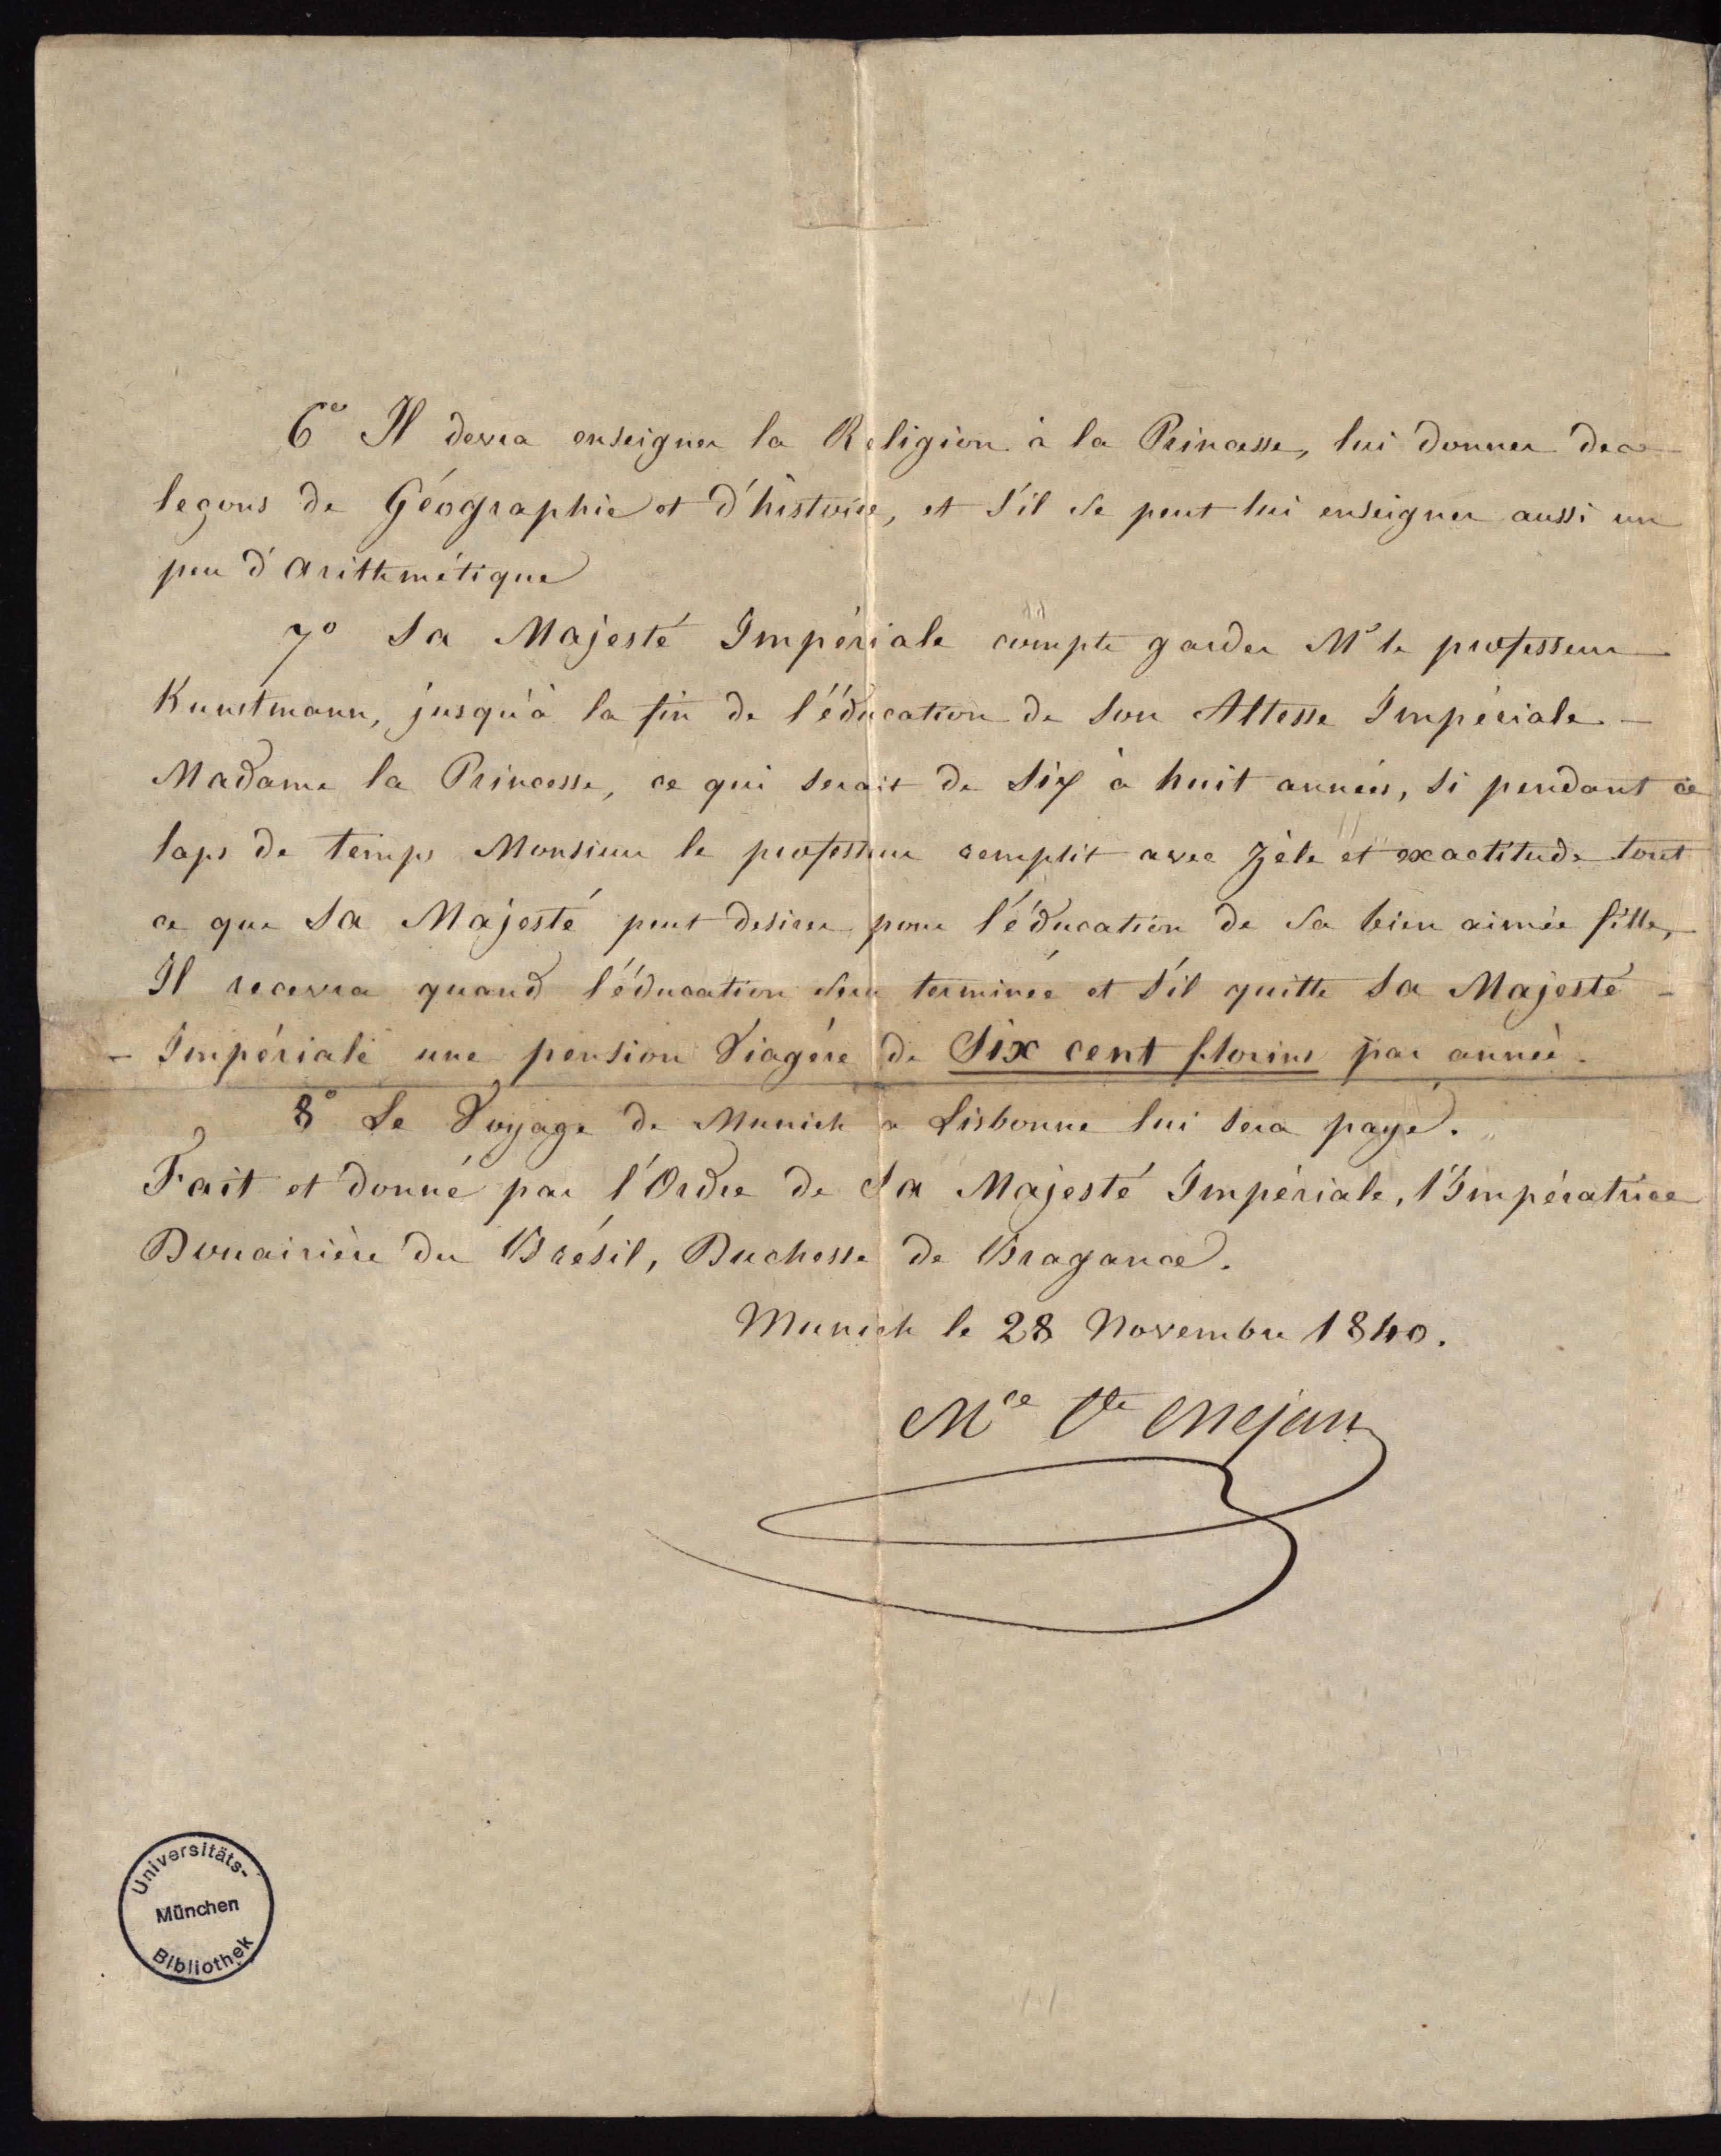 6° Il devra enseigner la Religion à la Princesse, lui donner des
leçons de Géographie et d'histoire, et s'il se peut lui enseigner aussi un
peu d'Arithmétique
7° Sa Majesté Impériale compte garder Mr le professeur
Kunstmann, jusqu'à la fin de l'éducation de Son Altesse Impériale -
Madame la Princesse, ce qui serait de Six à huit années, si pendant ce
laps de temps Monsieur le professeur remplit avec Zèle et exactitude tout
ce que Sa Majesté peut desirer pour l'éducation de Sa bien aimée fille,
Il recevra quand l'éducation sera terminée et s'il quitte Sa Majesté -
- Impériale une pension Viagère de Six cent florins par année.
8° Le Voyage de Munich a Lisbonne lui sera payé.
Fait et donné par l'Ordre de Sa Majesté Impériale, l'Impératrice
Douairière du Brésil, Duchesse de Bragance.
Munich le 28 Novembre 1840.
Mce Vte Mejan
Universitäts-
München
Bibliothek